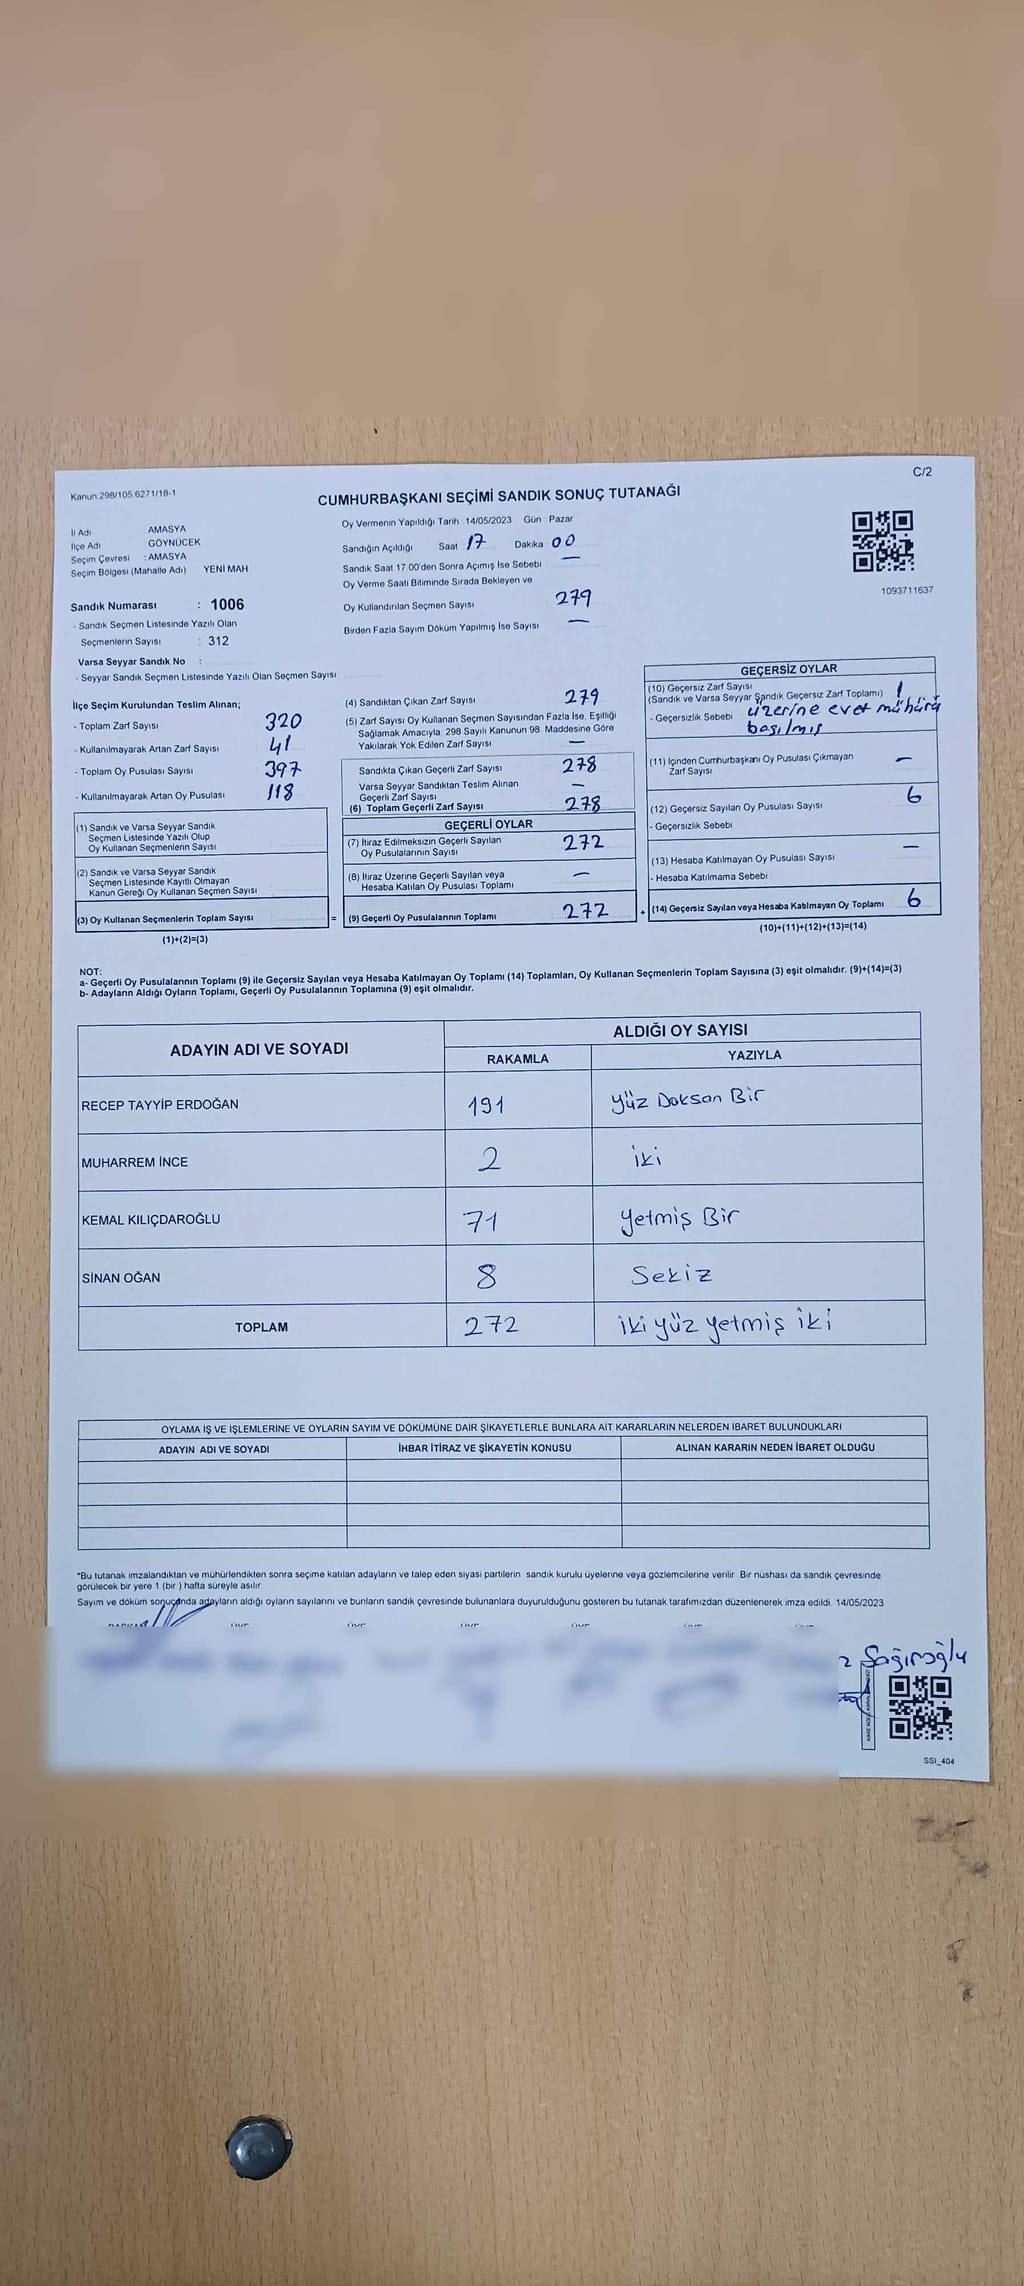 C/2
Kanun 298/105 6271/18-1
CUMHURBAŞKANI SEÇİMİ SANDIK SONUÇ TUTANAĞI
İl Adı AMASYA
İlçe Adı GÖYNÜCEK
Seçim Çevresi : AMASYA
Seçim Bölgesi (Mahalle Adı) : YENİ MAH
Sandık Numarası : 1006
- Sandık Seçmen Listesinde Yazılı Olan
Seçmenlerin Sayısı : 312
Varsa Seyyar Sandık No :
- Seyyar Sandık Seçmen Listesinde Yazılı Olan Seçmen Sayısı
Oy Vermenin Yapıldığı Tarih 14/05/2023 Gün Pazar
Sandığın Açıldığı Saat 17 Dakika 00
Sandık Saat 17 00'den Sonra Açımış İse Sebebi —
Oy Verme Saati Bitiminde Sırada Bekleyen ve
Oy Kullandırılan Seçmen Sayısı 279
Birden Fazla Sayım Döküm Yapılmış İse Sayısı —
1093711637
İlçe Seçim Kurulundan Teslim Alınan;
- Toplam Zarf Sayısı 320
- Kullanılmayarak Artan Zarf Sayısı 41
- Toplam Oy Pusulası Sayısı 397
- Kullanılmayarak Artan Oy Pusulası 118
(1) Sandık ve Varsa Seyyar Sandık
Seçmen Listesinde Yazılı Olup
Oy Kullanan Seçmenlerin Sayısı
(2) Sandık ve Varsa Seyyar Sandık
Seçmen Listesinde Kayıtlı Olmayan
Kanun Gereği Oy Kullanan Seçmen Sayısı
(3) Oy Kullanan Seçmenlerin Toplam Sayısı
(1)+(2)=(3)
(4) Sandıktan Çıkan Zarf Sayısı 279
(5) Zarf Sayısı Oy Kullanan Seçmen Sayısından Fazla İse, Eşitliği
Sağlamak Amacıyla 298 Sayılı Kanunun 98. Maddesine Göre
Yakılarak Yok Edilen Zarf Sayısı —
Sandıkta Çıkan Geçerli Zarf Sayısı 278
Varsa Seyyar Sandıktan Teslim Alınan
Geçerli Zarf Sayısı —
(6) Toplam Geçerli Zarf Sayısı 278
GEÇERLİ OYLAR
(7) İtiraz Edilmeksizin Geçerli Sayılan
Oy Pusulalarının Sayısı 272
(8) İtiraz Üzerine Geçerli Sayılan veya
Hesaba Katılan Oy Pusulası Toplamı —
= (9) Geçerli Oy Pusulalarının Toplamı 272
GEÇERSİZ OYLAR
(10) Geçersiz Zarf Sayısı
(Sandık ve Varsa Seyyar Sandık Geçersiz Zarf Toplamı) 1
- Geçersizlik Sebebi üzerine evet mührü
basılmış
(11) İçinden Cumhurbaşkanı Oy Pusulası Çıkmayan
Zarf Sayısı —
(12) Geçersiz Sayılan Oy Pusulası Sayısı 6
- Geçersizlik Sebebi
(13) Hesaba Katılmayan Oy Pusulası Sayısı —
- Hesaba Katılmama Sebebi
+ (14) Geçersiz Sayılan veya Hesaba Katılmayan Oy Toplamı 6
(10)+(11)+(12)+(13)=(14)
NOT:
a- Geçerli Oy Pusulalarının Toplamı (9) ile Geçersiz Sayılan veya Hesaba Katılmayan Oy Toplamı (14) Toplamları, Oy Kullanan Seçmenlerin Toplam Sayısına (3) eşit olmalıdır. (9)+(14)=(3)
b- Adayların Aldığı Oyların Toplamı, Geçerli Oy Pusulalarının Toplamına (9) eşit olmalıdır.
ADAYIN ADI VE SOYADI ALDIĞI OY SAYISI
RAKAMLA YAZIYLA
RECEP TAYYİP ERDOĞAN 191 Yüz Doksan Bir
MUHARREM İNCE 2 iki
KEMAL KILIÇDAROĞLU 71 Yetmiş Bir
SİNAN OĞAN 8 Sekiz
TOPLAM 272 iki yüz yetmiş iki
OYLAMA İŞ VE İŞLEMLERİNE VE OYLARIN SAYIM VE DÖKÜMÜNE DAİR ŞİKAYETLERLE BUNLARA AİT KARARLARIN NELERDEN İBARET BULUNDUKLARI
ADAYIN ADI VE SOYADI İHBAR İTİRAZ VE ŞİKAYETİN KONUSU ALINAN KARARIN NEDEN İBARET OLDUĞU
*Bu tutanak imzalandıktan ve mühürlendikten sonra seçime katılan adayların ve talep eden siyasi partilerin sandık kurulu üyelerine veya gözlemcilerine verilir. Bir nüshası da sandık çevresinde
görülecek bir yere 1 (bir ) hafta süreyle asılır.
Sayım ve döküm sonucunda adayların aldığı oyların sayılarını ve bunların sandık çevresinde bulunanlara duyurulduğunu gösteren bu tutanak tarafımızdan düzenlenerek imza edildi. 14/05/2023
Sağıroğlu
SSİ_404